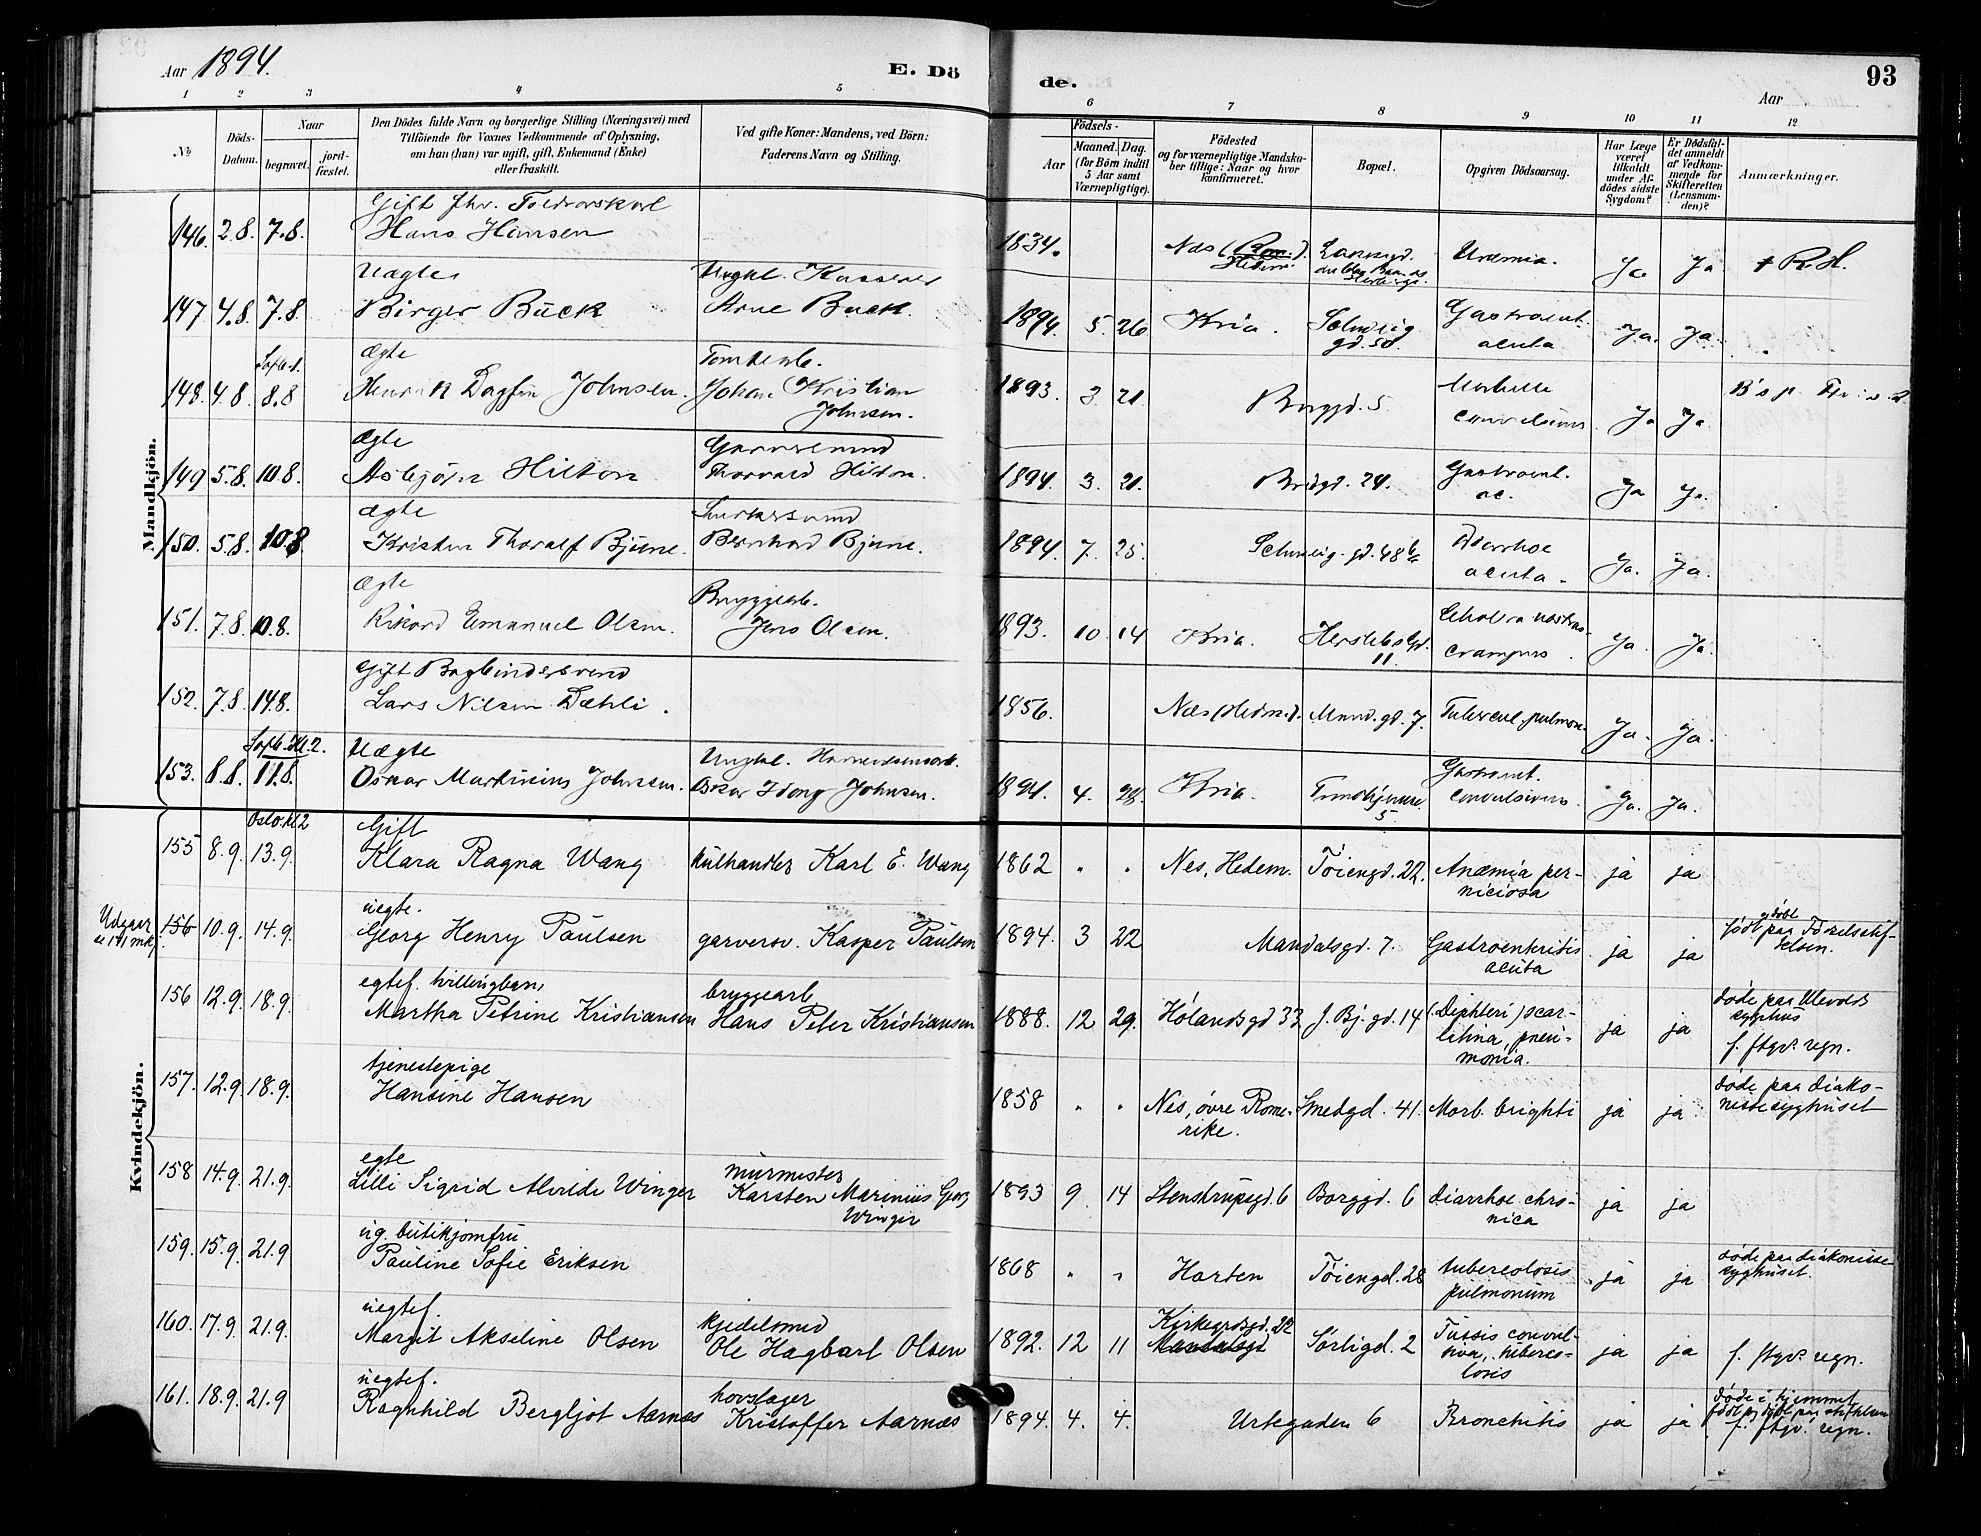 Aar 1894.
E. Dö
de.
Aar
93
1 2 3 4 5 6 7 8 9 10 11 12
No
Döds-Datum.
Naar
begravet.
jord-fæstet.
Den Dödes fulde Navn og borgerlige Stilling (Næringsvei) med
Tilföiende for Voxnes Vedkommende af Oplysning,
om han (hun) var ugift, gift, Enkemand (Enke)
eller fraskilt.
Ved gifte Koner: Mandens, ved Börn:
Faderens Navn og Stilling.
Födsels-
Aar
Maaned. Dag.
(for Börn indtil
5 Aar samt
Værnepligtige).
Födested
og for værnepligtige Mandska-
ber tillige: Naar og hvor
konfirmeret.
Bopæl.
Opgiven Dödsaarsag.
Har Læge
været
tilkaldt
under Af-
dödes sidste
Sygdom?
Er Dödsfal-
det anmeldt
af Vedkom-
mende for
Skifteretten
(Lensman-
den)?
Anmærkninger.
Mandkjön.
Gift fhv.
146. 2.8. 7.8. Hans Hansen 1834. Næs Uræmia. Ja Ja R.H.
Uægte Ungkl. Kasserer
147 4.8. 7.8. Birger Buck Arne Buck. 1894. 5 26 Kria. Schweig gd. 50. Gastroent. acuta Ja. Ja.
Ægte
148. 4.8. 8.8 Henrik Dagfin Johnsen. Johan Kristian Johnsen. 1893. 3. 21 Borggd. 5. Ja Ja.
Ægte
149 5.8. 10.8. Asbjörn Hilton Thorvald Hilton. 1894. 3. 21. 24. Gastroent. ac. Ja Ja.
Ægte
150. 5.8. 10.8. Kristen Thoralf Bjune. Bernhard Bjune. 1894. 7. 25. Schweig. gd. 48 b Diarrhoe acuta. Ja. Ja.
Ægte Bryggearb.
151. 7.8. 10.8. Rikard Emanuel Olsen. Jens Olsen. 1893. 10 14 Kria. Herslebs Gd. 11. Cholera nostras Ja. Ja.
Gift Bogbindersvend
152. 7.8. 14.8. Lars Nilsen Dæhli. 1856. Næs (Hedm.). Mand. gd. 7. Tubercul. pulmon. Ja. Ja.
Uægte Ungkl.
153. 8.8. 11.8. Oskar Martinius Johnsen. Oskar Johnsen. 1894. 4. 28. Kria. 5. Gastroent. Ja. Ja.
Kvindekjön.
Oslo. kl 2 Gift
155 8.9. 13.9. Klara Ragna Wang kulhandler Karl E. Wang 1862 " " Nes, Hedem. Töiengd. 22. Anæmia per-
niciosa ja ja
Udgaar
uegte.
156 10.9. 14.9. Georg Henry Paulsen garversv. Kasper Paulsen 1894. 3 22 Mandalsgd. 7. Gastroenteritis
acuta ja ja födt og döbt paa Födselsstif-
telsen.
egtef. tvillingbarn, bryggearb.
156 12.9. 18.9. Martha Petrine Kristiansen Hans Peter Kristiansen 1888. 12 29. Hölandsgd 33 J. Bj. gd. 14 (Diphteri) scar-
latina, pneu-
monia. ja ja döde paa Ulevolds
sygehus
f. ftgv. regn.
tjenestepige
157. 12.9. 18.9. Hansine Hansen 1858 " " Nes, övre Rome-
rike. Smedgd. 41. Morb. brighti ja ja döde paa diako-
nissesyghuset
egte murmester
158 14.9. 21.9. Lilli Sigrid Alvilde Winger Karsten Marenius Georg
Winger 1893 9 14 Stenstrupsgd. 6 Borggd. 6 diarrhoe chro-
nica ja ja
ug. butikjomfru
159. 15.9. 21.9 Pauline Sofie Eriksen 1868 " " Horten Töiengd. 28 tuberculosis
pulmonum ja ja döde paa diakonisse
syghuset.
uegtef. kjedelsmed
160. 17.9. 21.9. Margit Akseline Olsen Ole Hagbart Olsen 1892. 12 11 Kirkegdsgd. 22
Mandalsgt Sörligd. 2 Tussis convul-
siva, tubercu-
losis ja ja f. ftgv. regn.
uegtef. hovslager
161. 18.9. 21.9 Ragnhild Bergljot Aarnæs Kristoffer Aarnæs 1894. 4. 4. Urtegaden 6 Bronchitis ja ja döde i hjemmet
födt og döbt paa stiftelsen
f. ftgv. regn.